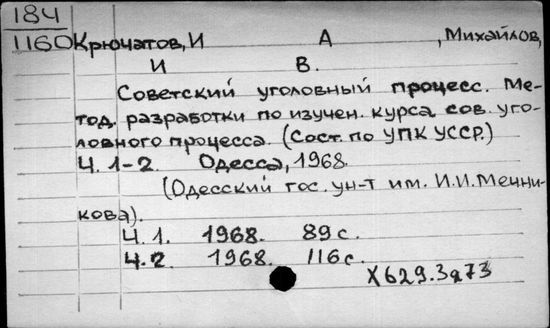 184
1160 Крючатов, И А , Михайлов,
И В.
Советский уголовный процесс. Ме-
тод. разработки по изучен. курса сов. уго-
ловного процесса. (Сост. по УПК УССР.)
Ч. 1-2. Одесса, 1968.
(Одесский гос. ун-т им. И.И. Мечни-
кова).
Ч.1. 1968. 89с.
Ч.2. 1968. 116с.
Х629.3я73